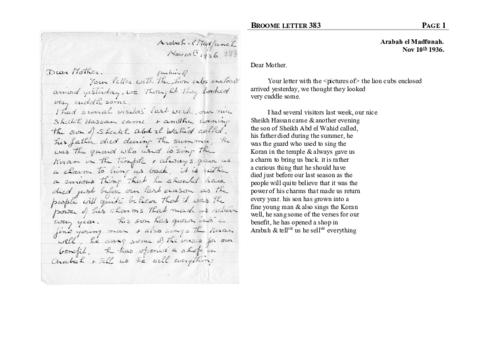 Arabah el Madfunah
Nov 10th 1936. 383
Dear Mother,
Your letter with the lion cubs enclosed
arrived yesterday, we thought they looked
very cuddle some.
I had several visitors last week, our nice
Sheikh Hassan came & another evening
the son of Sheikh abd el Wahid called,
his father died during the summer, he
was the guard who used to sing the
Koran in the temple & always gave us
a charm to bring us back. it is rather
a curious thing that he should have
died just before our last season as the
people will quite believe that it was the
power of his charms that made us return
every year. his son has grown into a
fine young man & also sings the Koran
well, he sang some of the verses for our
benefit, he has opened a shop in
Arabah & tell us he sell everything
BROOME LETTER 383 PAGE 1
Arabah el Madfunah.
Nov 10th 1936.
Dear Mother.
Your letter with the <pictures of> the lion cubs enclosed
arrived yesterday, we thought they looked
very cuddle some.
I had several visitors last week, our nice
Sheikh Hassan came & another evening
the son of Sheikh Abd el Wahid called,
his father died during the summer, he
was the guard who used to sing the
Koran in the temple & always gave us
a charm to bring us back. it is rather
a curious thing that he should have
died just before our last season as the
people will quite believe that it was the
power of his charms that made us return
every year. his son has grown into a
fine young man & also sings the Koran
well, he sang some of the verses for our
benefit, he has opened a shop in
Arabah & tell us he sell everything